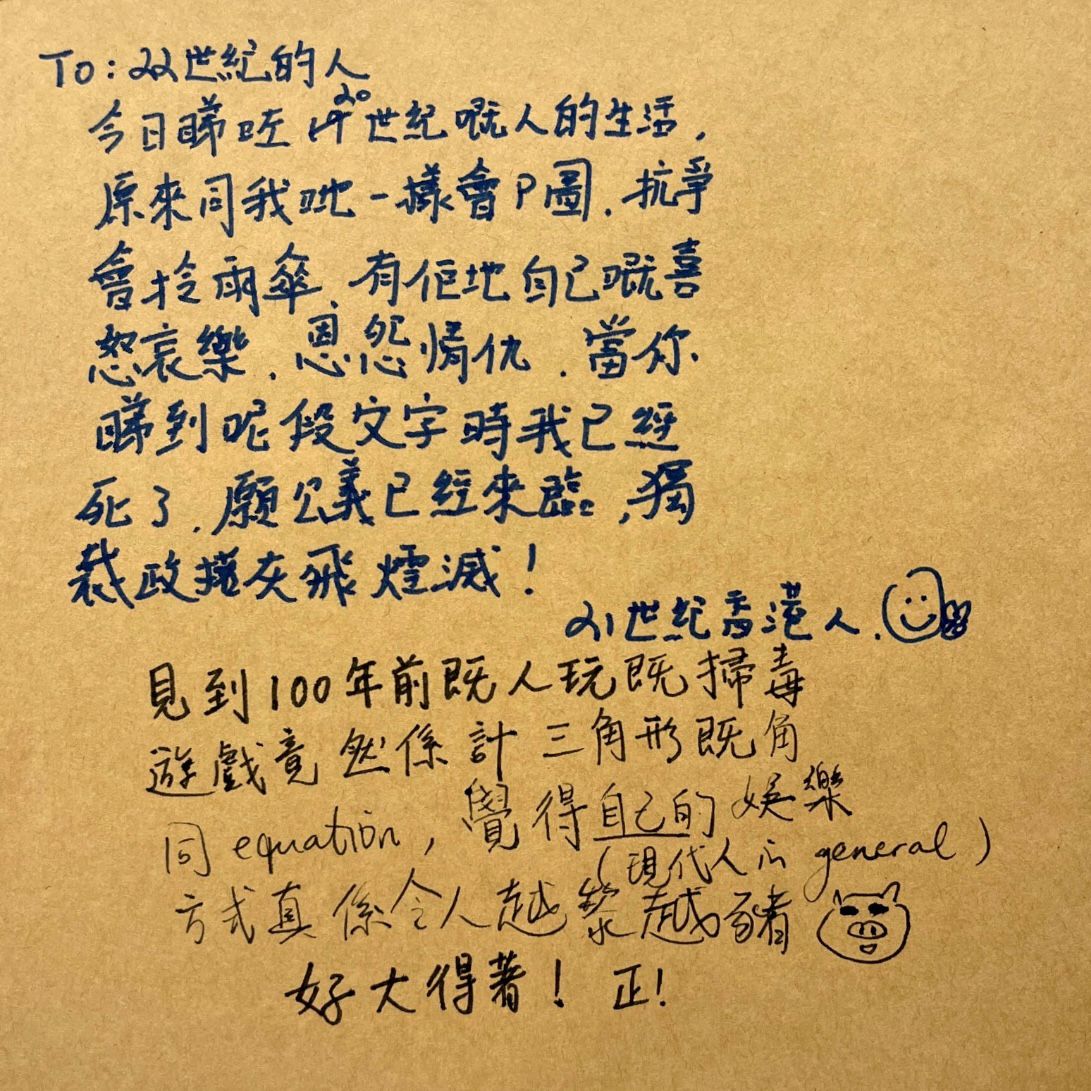 To: 22世紀的人
今日睇咗20世紀嘅人的生活,
原來同我哋一樣會P圖,抗爭
會拎雨傘,有佢地自己嘅喜
怒哀樂,恩怨情仇,當你
睇到呢段文字時我已經
死了,願公義已經來臨,獨
裁政權灰飛煙滅!
21世紀香港人.
見到100年前既人玩既掃毒
遊戲竟然係計三角形既角
同equation,覺得自己的娛樂
(現代人in general)
方式真係令人越黎越豬
好大得著! 正!